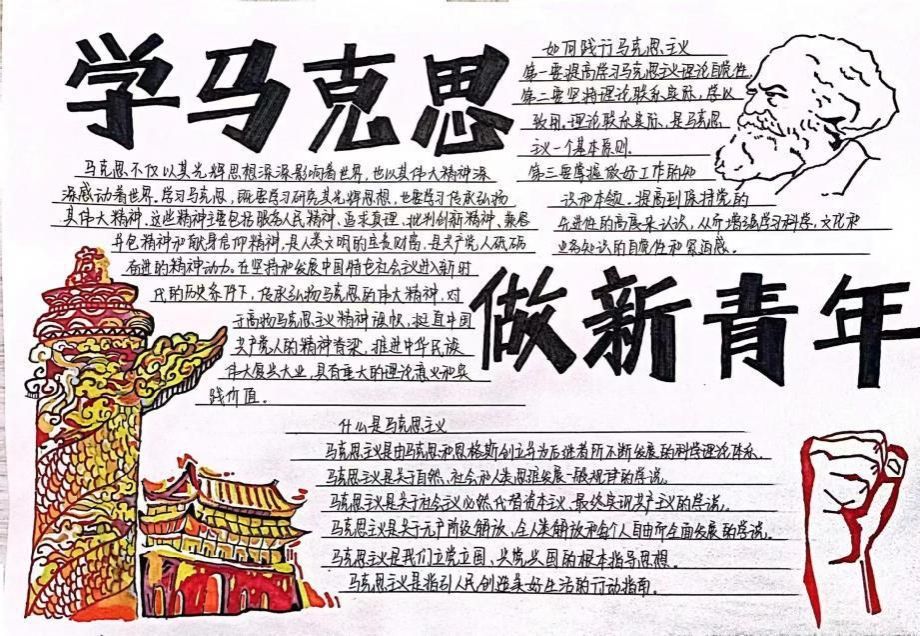 学马克思
如何践行马克思主义
第一要提高学习马克思主义理论自觉性,
第二要坚持理论联系实际，学以
致用。理论联系实际，是马克思
主义一个基本原则。
第三要掌握做好工作的知
识和本领，提高到保持党的
先进性的高度来认识，从而增强学习科学，文化和
业务知识的自觉性和紧迫感。
马克思不仅以其光辉思想深深影响着世界，也以其伟大精神深
深感动着世界。学习马克思，既要学习研究其光辉思想，也要学习传承弘扬
其伟大精神。这些精神主要包括服务人民精神、追求真理、批判创新精神、兼容
并包精神和献身信仰精神，是人类文明的宝贵财富，是共产党人砥砺
奋进的精神动力。在坚持和发展中国特色社会主义进入新时
代的历史条件下，传承弘扬马克思的伟大精神，对
于高扬马克思主义精神旗帜，挺直中国
共产党人的精神脊梁，推进中华民族
伟大复兴大业，具有重大的理论意义和实
践价值。
做新青年
什么是马克思主义
马克思主义是由马克思和恩格斯创立并为后继者所不断发展的科学理论体系.
马克思主义是关于自然、社会和人类思维发展一般规律的学说。
马克思主义是关于社会主义必然代替资本主义、最终实现共产主义的学说。
马克思主义是关于无产阶级解放、全人类解放和每个人自由而全面发展的学说。
马克思主义是我们立党立国、兴党兴国的根本指导思想。
马克思主义是指引人民创造美好生活的行动指南。